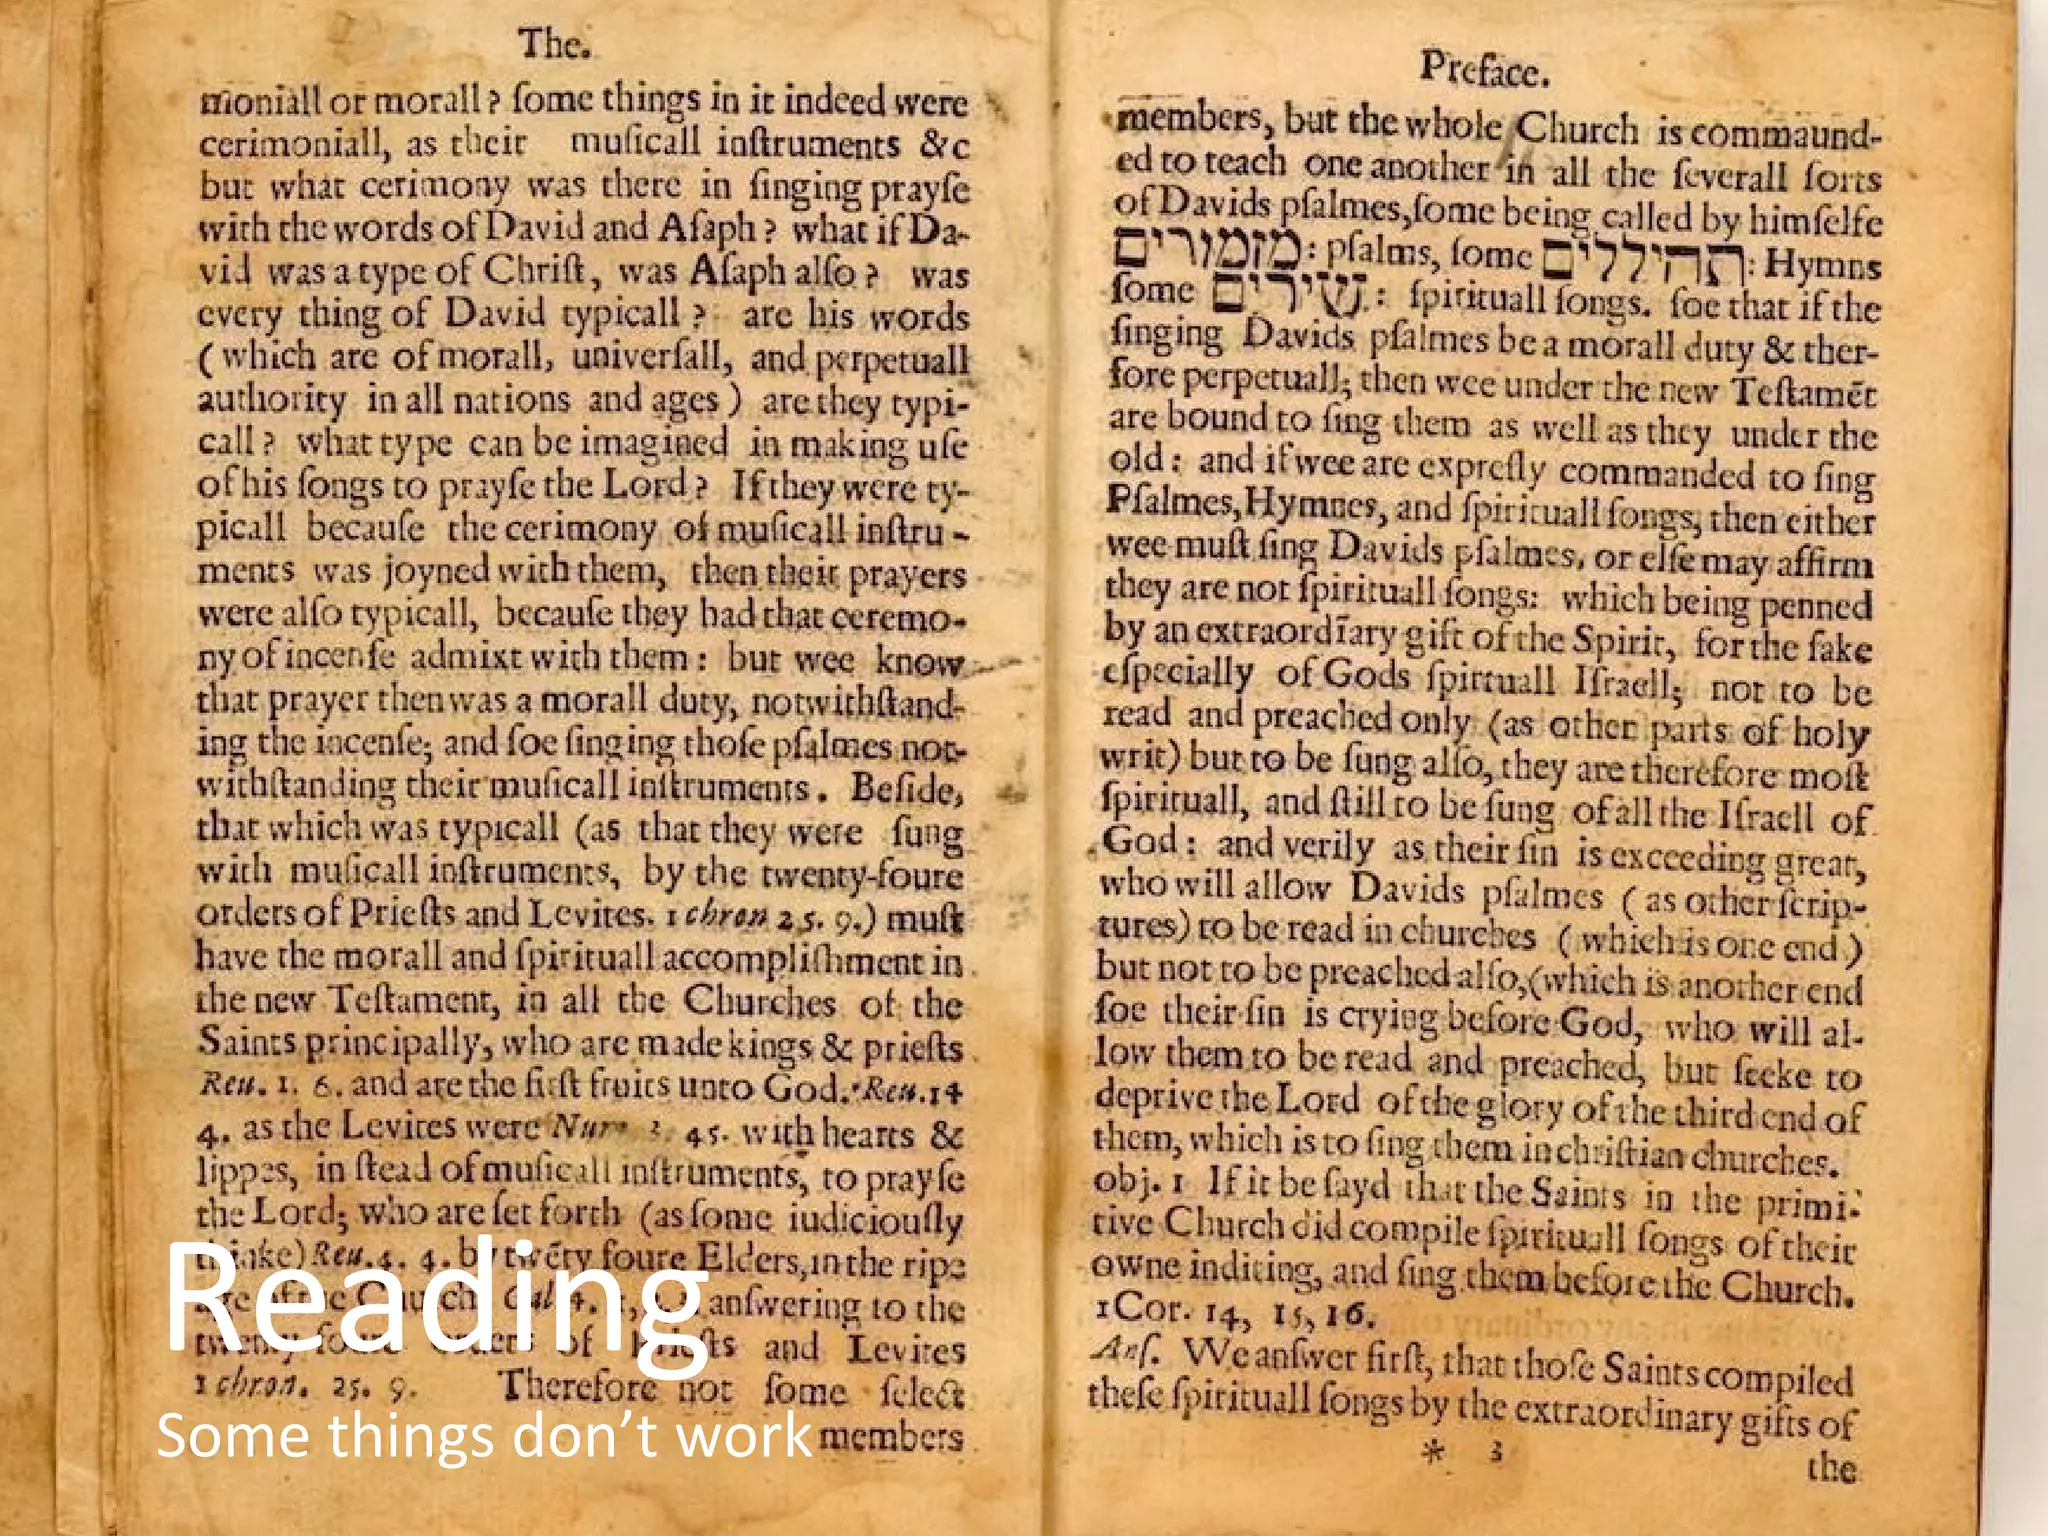 The.
moniall or morall? ſome things in it indeed were
cerimoniall, as their muſicall inſtruments &c
but what cerimony was there in ſinging prayſe
with the words of David and Aſaph? what if Da-
vid was a type of Chriſt, was Aſaph alſo? was
every thing of David typicall? are his words
(which are of morall, univerſall, and perpetuall
authority in all nations and ages) are they typi-
call? what type can be imagined in making uſe
of his ſongs to prayſe the Lord? If they were ty-
picall becauſe the cerimony of muſicall inſtru-
ments was joyned with them, then their prayers
were alſo typicall, becauſe they had that ceremo-
ny of incenſe admixt with them: but wee know
that prayer then was a morall duty, notwithſtand-
ing the incenſe; and ſoe ſinging thoſe pſalmes not-
withſtanding their muſicall inſtruments. Beſide,
that which was typicall (as that they were ſung
with muſicall inſtruments, by the twenty-foure
orders of Prieſts and Levites. 1 chron 25. 9.) muſt
have the morall and ſpirituall accompliſhment in
the new Teſtament, in all the Churches of the
Saints principally, who are made kings & prieſts
Reu. 1. 6. and are the firſt fruits unto God. Reu. 14
4. as the Levites were 45. with hearts &
lippes, in ſtead of muſicall inſtruments, to prayſe
the Lord; who are ſet forth (as ſome iudiciouſly
thinke) Reu. 4. 4. by twẽty foure Elders, in the ripe
age of the Church, Gal. 4. anſwering to the
twenty foure orders of Prieſts and Levites
1 chron. 25. 9. Therefore not ſome ſelect
members
Reading
Some things don’t work
Preface.
members, but the whole Church is commaund-
ed to teach one another in all the ſeverall ſorts
of Davids pſalmes, ſome being called by himſelfe
מזמורים: pſalms, ſome תהיללים: Hymns
ſome שירים: ſpirituall ſongs. ſoe that if the
ſinging Davids pſalmes be a morall duty & ther-
fore perpetuall; then wee under the new Teſtamẽt
are bound to ſing them as well as they under the
old: and if wee are expreſly commanded to ſing
Pſalmes, Hymnes, and ſpirituall ſongs, then either
wee muſt ſing Davids pſalmes, or elſe may affirm
they are not ſpirituall ſongs: which being penned
by an extraordīary gift of the Spirit, for the ſake
eſpecially of Gods ſpirtuall Iſraell; not to be
read and preached only (as other parts of holy
writ) but to be ſung alſo, they are therefore moſt
ſpirituall, and ſtill to be ſung of all the Iſraell of
God: and verily as their ſin is exceeding great,
who will allow Davids pſalmes (as other ſcrip-
tures) to be read in churches (which is one end)
but not to be preached alſo, (which is another end
ſoe their ſin is crying before God, who will al-
low them to be read and preached, but ſeeke to
deprive the Lord of the glory of the third end of
them, which is to ſing them in chriſtian churches.
obj. 1 If it be ſayd that the Saints in the primi-
tive Church did compile ſpirituall ſongs of their
owne inditing, and ſing them before the Church.
1Cor. 14, 15, 16.
Anſ. We anſwer firſt, that thoſe Saints compiled
theſe ſpirituall ſongs by the extraordinary gifts of
* 3
the